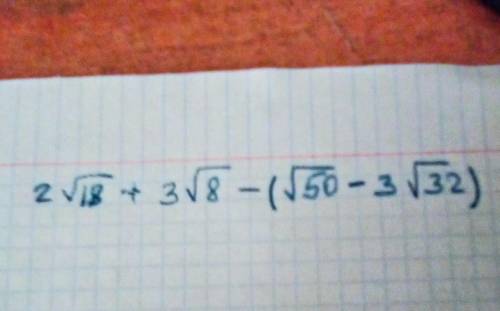 2√18 + 3√8 - (√50 - 3√32)